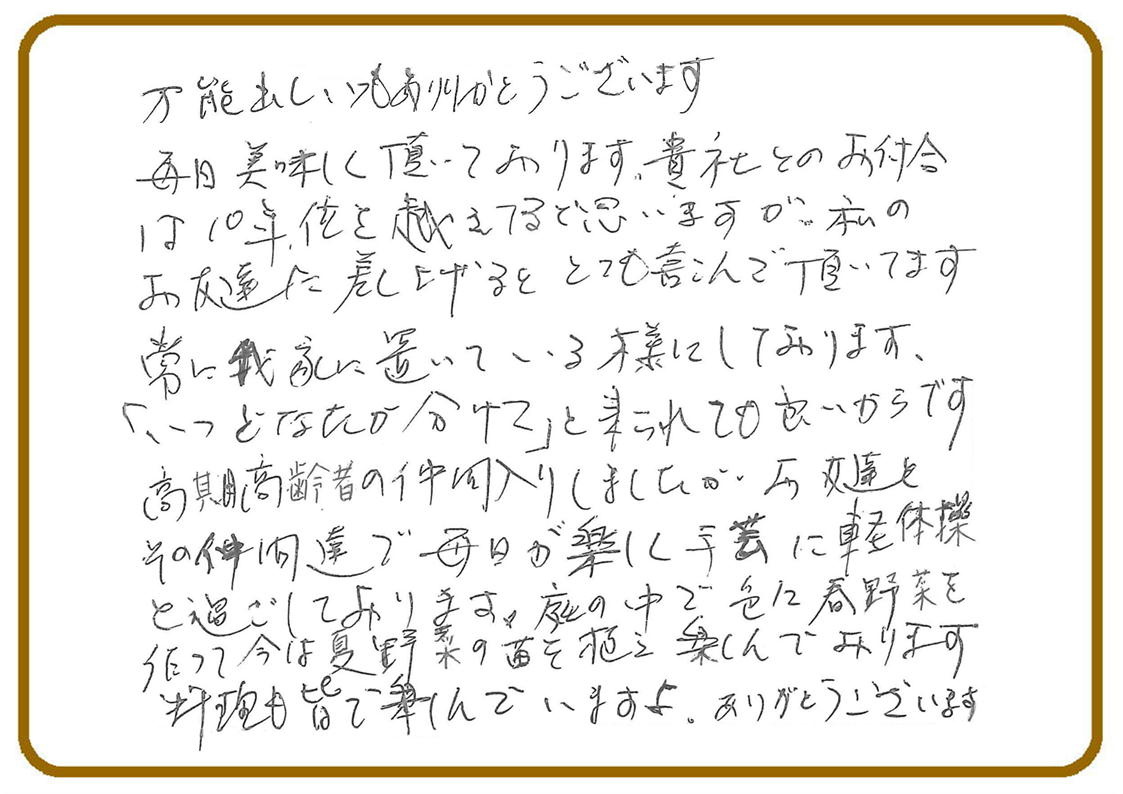 万能出しいつもありがとうございます
毎日美味しく頂いております。貴社とのお付合
は10年位を越えてると思いますが、私の
お友達に差し上げるととても喜こんで頂いてます
常に我家に置いている様にしております、
「いつどなたか分けて」と来られても良いからです
高期高齢者の仲間入りしましたが お友達と
その仲間達で毎日が楽しく手芸に軽体操
と過ごしております。庭の中で色々春野菜を
作って今は夏野菜の苗を植え楽しんでおります
料理も皆で楽しんでいますよ。ありがとうございます